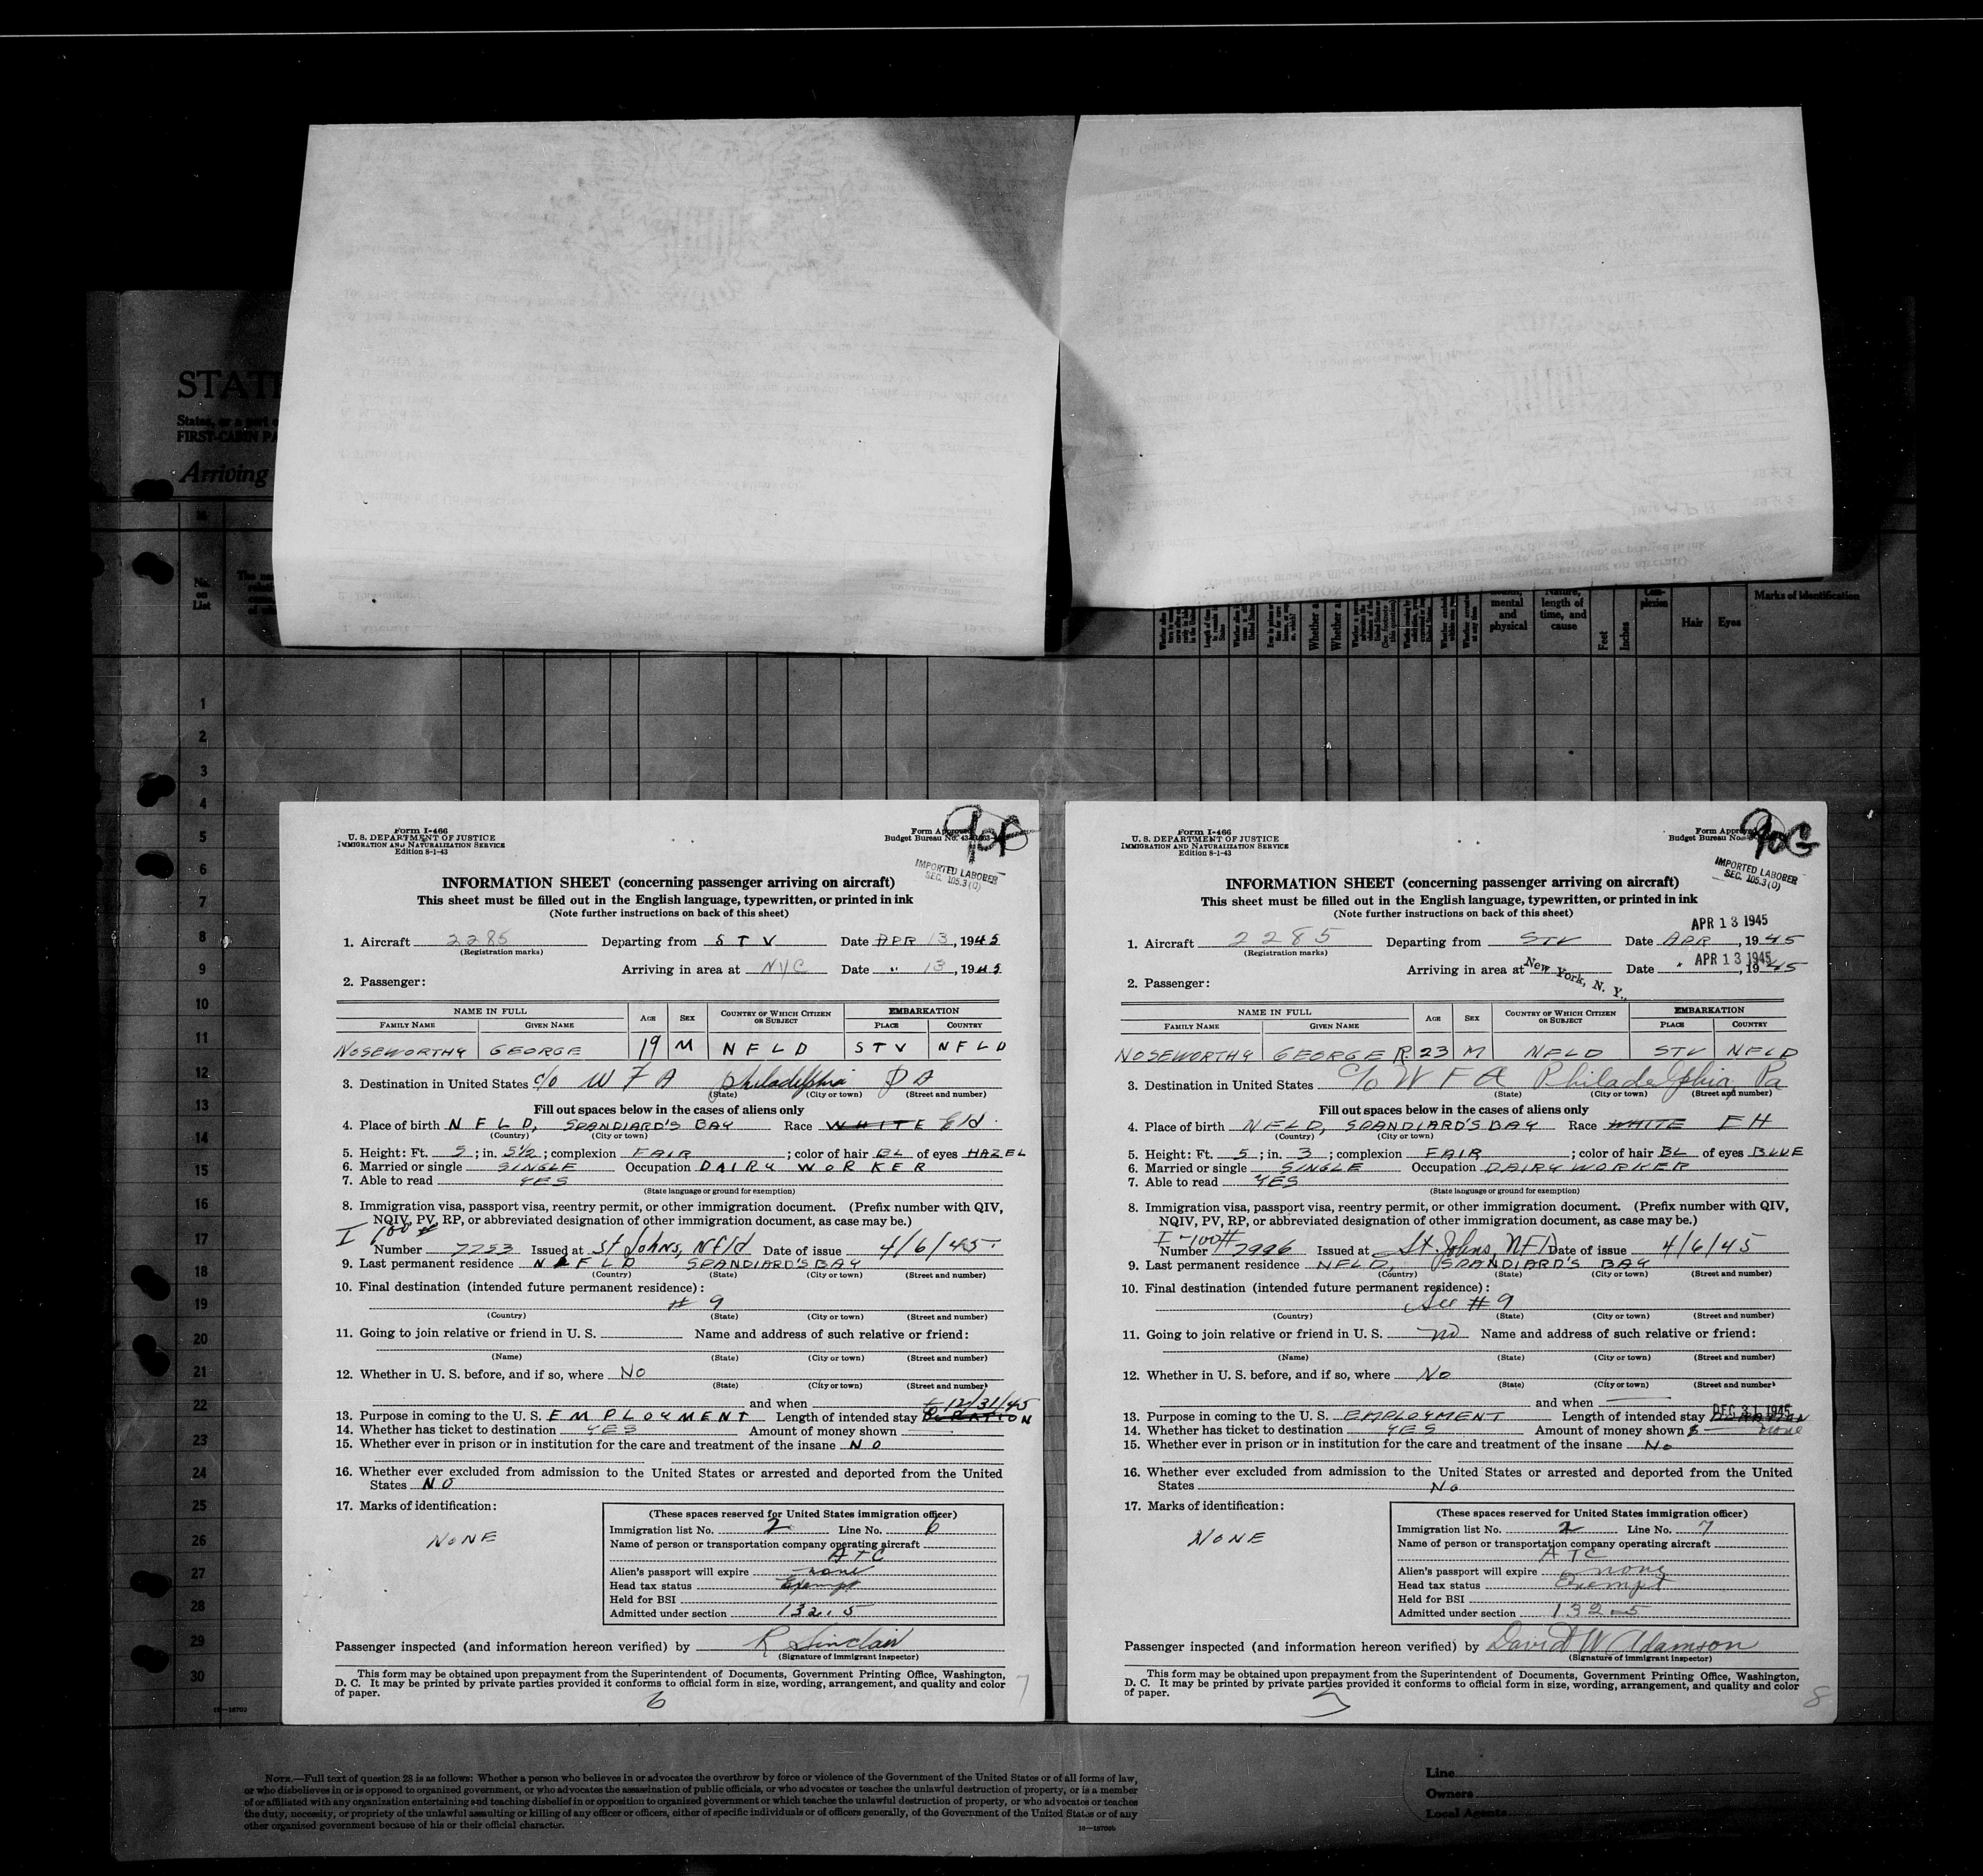 STATE
States, or a port o
FIRST-CABIN PA
Arriving
No. on List
mental and physical
Nature, length of time, and cause
Feet
Inches
Com-plexion
Hair
Eyes
Marks of Identification
1
2
3
4
5
6
7
8
9
10
11
12
13
14
15
16
17
18
19
20
21
22
23
24
25
26
27
28
29
30
Form I-466
U. S. DEPARTMENT OF JUSTICE
IMMIGRATION AND NATURALIZATION SERVICE
Edition 8-1-43
Form Approved
Budget Bureau No.
IMPORTED LABORER
SEC. 105.3 (O)
INFORMATION SHEET (concerning passenger arriving on aircraft)
This sheet must be filled out in the English language, typewritten, or printed in ink
(Note further instructions on back of this sheet)
1. Aircraft 2285 Departing from STV Date APR 13, 1945
(Registration marks)
Arriving in area at NYC Date " 13, 1945
2. Passenger:
NAME IN FULL AGE SEX COUNTRY OF WHICH CITIZEN OR SUBJECT EMBARKATION
FAMILY NAME GIVEN NAME PLACE COUNTRY
NOSEWORTHY GEORGE 19 M NFLD STV NFLD
3. Destination in United States c/o WFA Philadelphia PA
(State) (City or town) (Street and number)
Fill out spaces below in the cases of aliens only
4. Place of birth NFLD, SPANDIARD'S BAY Race WHITE
(Country) (City or town)
5. Height: Ft. 5; in. 5½; complexion FAIR; color of hair BL of eyes HAZEL
6. Married or single SINGLE Occupation DAIRY WORKER
7. Able to read YES
(State language or ground for exemption)
8. Immigration visa, passport visa, reentry permit, or other immigration document. (Prefix number with QIV,
NQIV, PV, RP, or abbreviated designation of other immigration document, as case may be.)
I 100 #
Number 7253 Issued at St Johns, Nfld Date of issue 4/6/45
9. Last permanent residence NFLD SPANDIARD'S BAY
(Country) (State) (City or town) (Street and number)
10. Final destination (intended future permanent residence):
# 9
(Country) (State) (City or town) (Street and number)
11. Going to join relative or friend in U. S. Name and address of such relative or friend:
(Name) (State) (City or town) (Street and number)
12. Whether in U. S. before, and if so, where NO
(State) (City or town) (Street and number)
and when
12/31/45
13. Purpose in coming to the U. S. EMPLOYMENT Length of intended stay DURATION
14. Whether has ticket to destination YES Amount of money shown
15. Whether ever in prison or in institution for the care and treatment of the insane NO
16. Whether ever excluded from admission to the United States or arrested and deported from the United
States NO
17. Marks of identification:
NONE
(These spaces reserved for United States immigration officer)
Immigration list No. 2 Line No. 6
Name of person or transportation company operating aircraft
ATC
Alien's passport will expire none
Head tax status Exempt
Held for BSI
Admitted under section 132.5
Passenger inspected (and information hereon verified) by R Sinclair
(Signature of immigrant inspector)
This form may be obtained upon prepayment from the Superintendent of Documents, Government Printing Office, Washington,
D. C. It may be printed by private parties provided it conforms to official form in size, wording, arrangement, and quality and color
of paper.
6
7
Form I-466
U. S. DEPARTMENT OF JUSTICE
IMMIGRATION AND NATURALIZATION SERVICE
Edition 8-1-43
Form Approved
Budget Bureau No.
90G
IMPORTED LABORER
SEC. 105.3 (O)
INFORMATION SHEET (concerning passenger arriving on aircraft)
This sheet must be filled out in the English language, typewritten, or printed in ink
(Note further instructions on back of this sheet)
APR 13 1945
1. Aircraft 2285 Departing from STV Date APR, 1945
(Registration marks)
APR 13 1945
Arriving in area at New York, N. Y., Date ", 1945
2. Passenger:
NAME IN FULL AGE SEX COUNTRY OF WHICH CITIZEN OR SUBJECT EMBARKATION
FAMILY NAME GIVEN NAME PLACE COUNTRY
NOSEWORTHY GEORGE R. 23 M NFLD STV NFLD
3. Destination in United States c/o WFA Philadelphia, Pa
(State) (City or town) (Street and number)
Fill out spaces below in the cases of aliens only
4. Place of birth NFLD, SPANDIARD'S BAY Race WHITE
(Country) (City or town)
5. Height: Ft. 5; in. 3; complexion FAIR; color of hair BL of eyes BLUE
6. Married or single SINGLE Occupation DAIRY WORKER
7. Able to read YES
(State language or ground for exemption)
8. Immigration visa, passport visa, reentry permit, or other immigration document. (Prefix number with QIV,
NQIV, PV, RP, or abbreviated designation of other immigration document, as case may be.)
I-100#
Number 7226 Issued at St. Johns, NFD Date of issue 4/6/45
9. Last permanent residence NFLD, SPANDIARD'S BAY
(Country) (State) (City or town) (Street and number)
10. Final destination (intended future permanent residence):
See #9
(Country) (State) (City or town) (Street and number)
11. Going to join relative or friend in U. S. no Name and address of such relative or friend:
(Name) (State) (City or town) (Street and number)
12. Whether in U. S. before, and if so, where NO
(State) (City or town) (Street and number)
and when
DEC 31 1945
13. Purpose in coming to the U. S. EMPLOYMENT Length of intended stay DURATION
14. Whether has ticket to destination YES Amount of money shown $ none
15. Whether ever in prison or in institution for the care and treatment of the insane No
16. Whether ever excluded from admission to the United States or arrested and deported from the United
States No
17. Marks of identification:
NONE
(These spaces reserved for United States immigration officer)
Immigration list No. 2 Line No. 7
Name of person or transportation company operating aircraft
ATC
Alien's passport will expire none
Head tax status Exempt
Held for BSI
Admitted under section 132-5
Passenger inspected (and information hereon verified) by David W Adamson
(Signature of immigrant inspector)
This form may be obtained upon prepayment from the Superintendent of Documents, Government Printing Office, Washington,
D. C. It may be printed by private parties provided it conforms to official form in size, wording, arrangement, and quality and color
of paper.
8
NOTE.—Full text of question 28 is as follows: Whether a person who believes in or advocates the overthrow by force or violence of the Government of the United States or of all forms of law,
or who disbelieves in or is opposed to organized government, or who advocates the assassination of public officials, or who advocates or teaches the unlawful destruction of property, or is a member
of or affiliated with any organization entertaining and teaching disbelief in or opposition to organized government or which teaches the unlawful destruction of property, or who advocates or teaches
the duty, necessity, or propriety of the unlawful assaulting or killing of any officer or officers, either of specific individuals or of officers generally, of the Government of the United States or of any
other organized government because of his or their official character.
Line
Owners
Local Agents